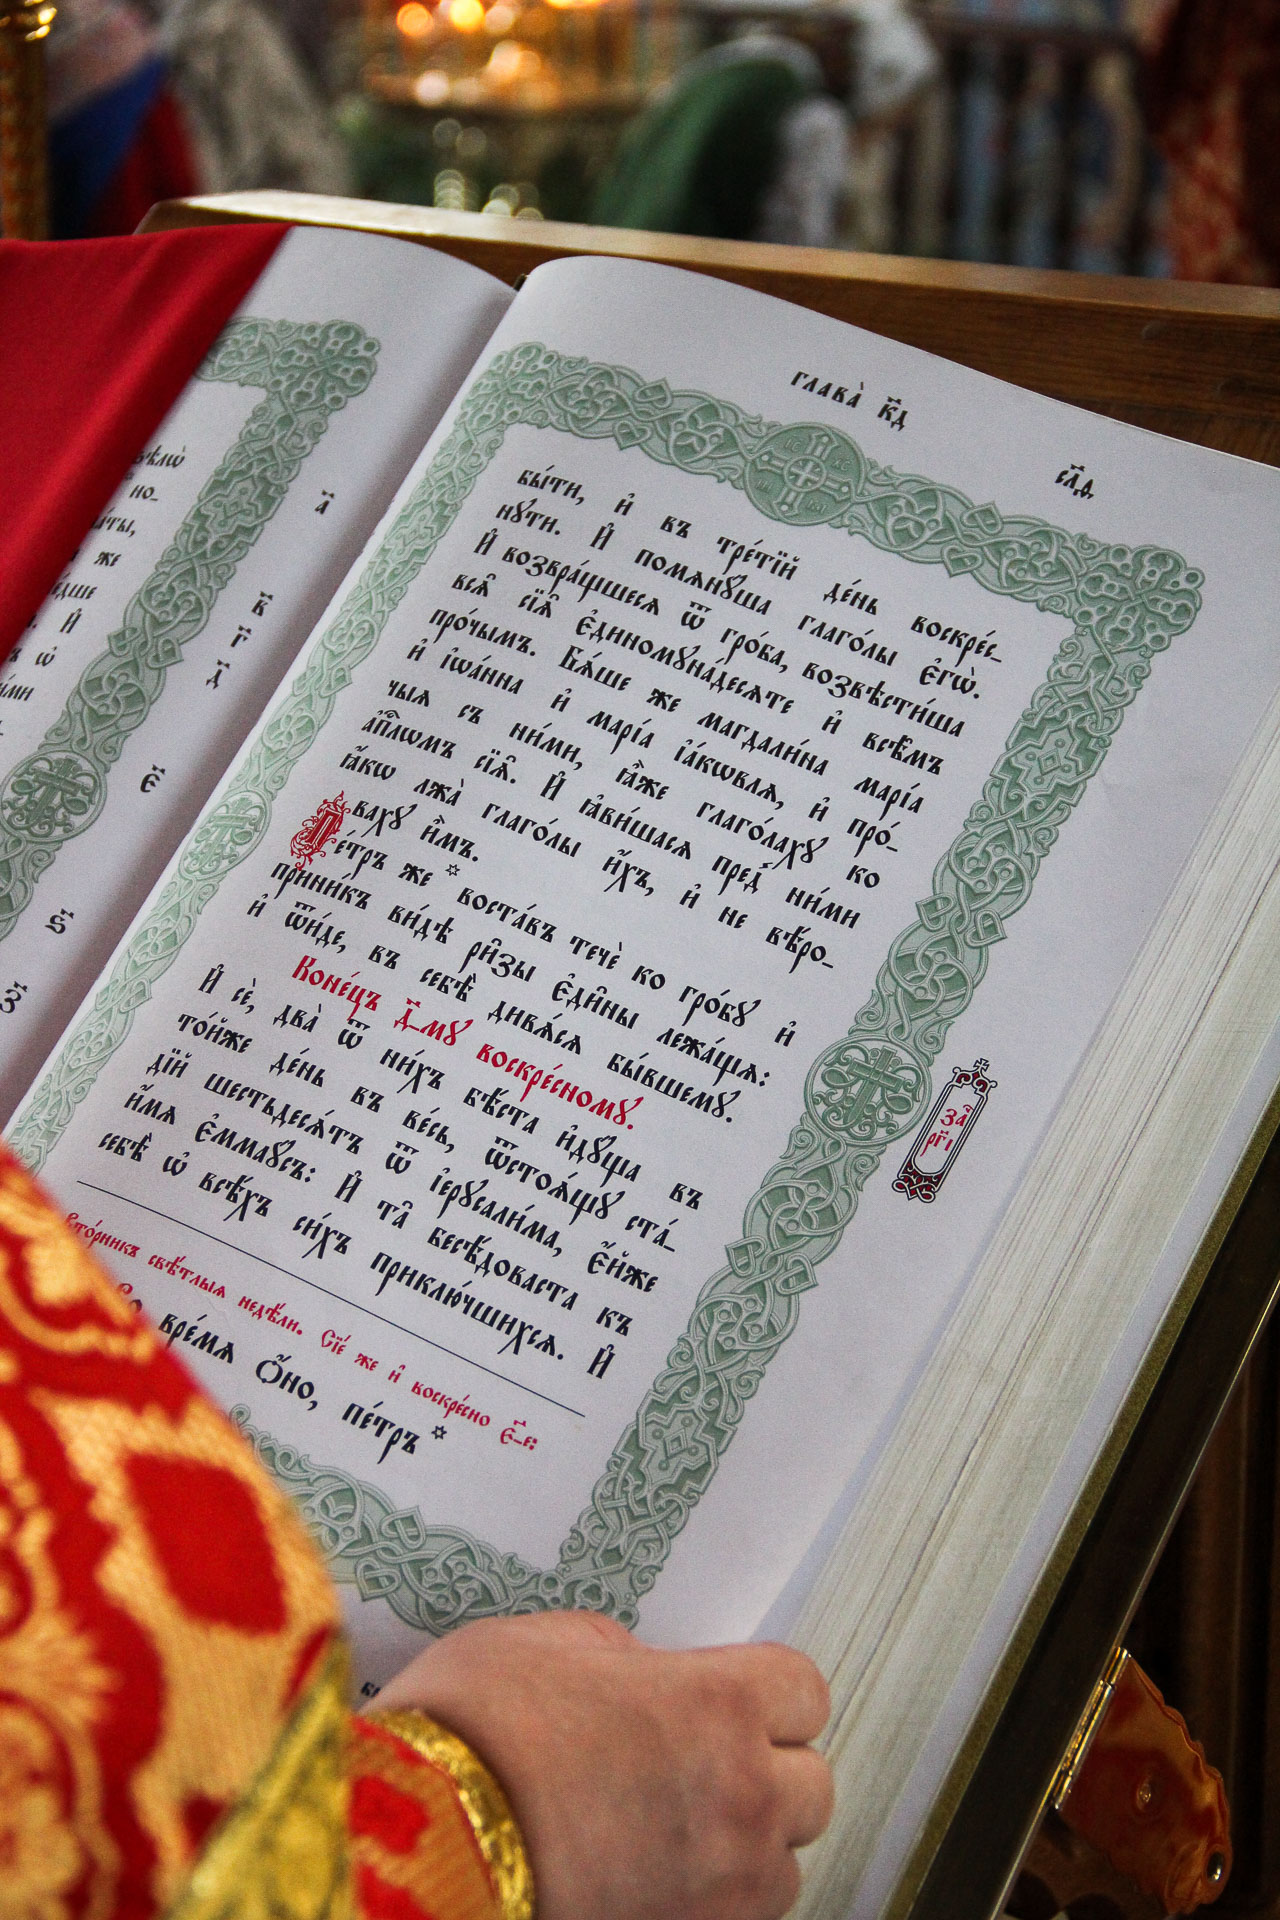 ѣлѡ
но-
аты,
же
едше
й
ѡ
ними
а҃
в҃
г҃
д҃
є҃
ѕ҃
з҃
глава̀ к҃д
сл҃д
бы́ти, и҆ въ тре́тїй де́нь воскре́с-
нꙋти. И҆ помѧнꙋ́ша глаго́лы є҆гѡ̀.
И҆ возвра́щшесѧ ѿ гро́ба, возвѣсти́ша
всѧ̑ сїѧ̑ є҆диномꙋна́десѧте и҆ всѣ̑мъ
про́чымъ. Бѧ́ше же магдали́на марі́а
и҆ і҆ѡа́нна и҆ марі́а і҆а́кѡвлѧ, и҆ про́-
чыѧ съ ни́ми, ꙗ҆̀же глаго́лахꙋ ко
а҆пⷭ҇лѡмъ сїѧ̑. И҆ ꙗ҆ви́шасѧ пред̾ ни́ми
ꙗ҆́кѡ лжа̀ глаго́лы и҆́хъ, и҆ не вѣ́ро-
вахꙋ и҆̀мъ.
Пе́тръ же * воста́въ течѐ ко гро́бꙋ и҆
прини́къ ви́дѣ ри̑зы є҆ди̑ны лежа́щѧ:
и҆ ѿи́де, въ себѣ̀ дивѧ́сѧ бы́вшемꙋ.
Коне́цъ д҃-мꙋ воскре́сномꙋ.
И҆ сѐ, два̀ ѿ ни́хъ бѣ́ста и҆дꙋ̑ща въ
то́йже де́нь въ ве́сь, ѿстоѧ́щꙋ ста́-
дїй шестьдесѧ́тъ ѿ і҆ерꙋсали́ма, є҆́йже
и҆́мѧ є҆ммаꙋ́съ: И҆ та̑ бесѣ́доваста къ
себѣ̀ ѡ҆ всѣ́хъ си́хъ приклю́чшихсѧ. И҆
за҃ рг҃і
вто́рникъ свѣ́тлыѧ недѣ́ли. Сїе́ же и҆ воскре́сно є҃-е:
Во вре́мѧ ѻ҆́но, пе́тръ *